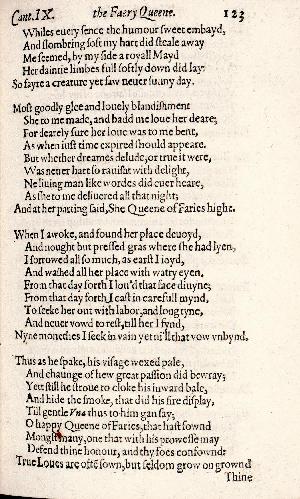 Cant. IX. the Faery Queene. 123
Whiles euery sence the humour sweet embayd,
And slombring soft my hart did steale away
Me seemed, by my side a royall Mayd
Her daintie limbes full softly down did lay:
So fayre a creature yet saw neuer sunny day.
Most goodly glee and louely blandishment
She to me made, and badd me loue her deare;
For dearely sure her loue was to me bent,
As when iust time expired should appeare.
But whether dreames delude, or true it were,
Was neuer hart so rauisht with delight,
Ne liuing man like wordes did euer heare,
As she to me deliuered all that night;
And at her parting said, She Queene of Faries hight.
When I awoke, and found her place deuoyd,
And nought but pressed gras where she had lyen,
I sorrowed all so much, as earst I ioyd,
And washed all her place with watry eyen.
From that day forth I lou'd that face diuyne;
From that day forth, I cast in carefull mynd,
To seeke her out with labor, and long tyne,
And neuer vowd to rest, till her I fynd,
Nyne monethes I seek in vain yet ni'll that vow vnbynd.
Thus as he spake, his visage wexed pale,
And chaunge of hew great passion did bewray;
Yett still he stroue to cloke his inward bale,
And hide the smoke, that did his fire display,
Till gentle Vna thus to him gan say;
O happy Queene of Faries, that hast fownd
Mongst many, one that with his prowesse may
Defend thine honour, and thy foes confownd:
True Loues are oftē sown, but seldom grow on grownd
Thine